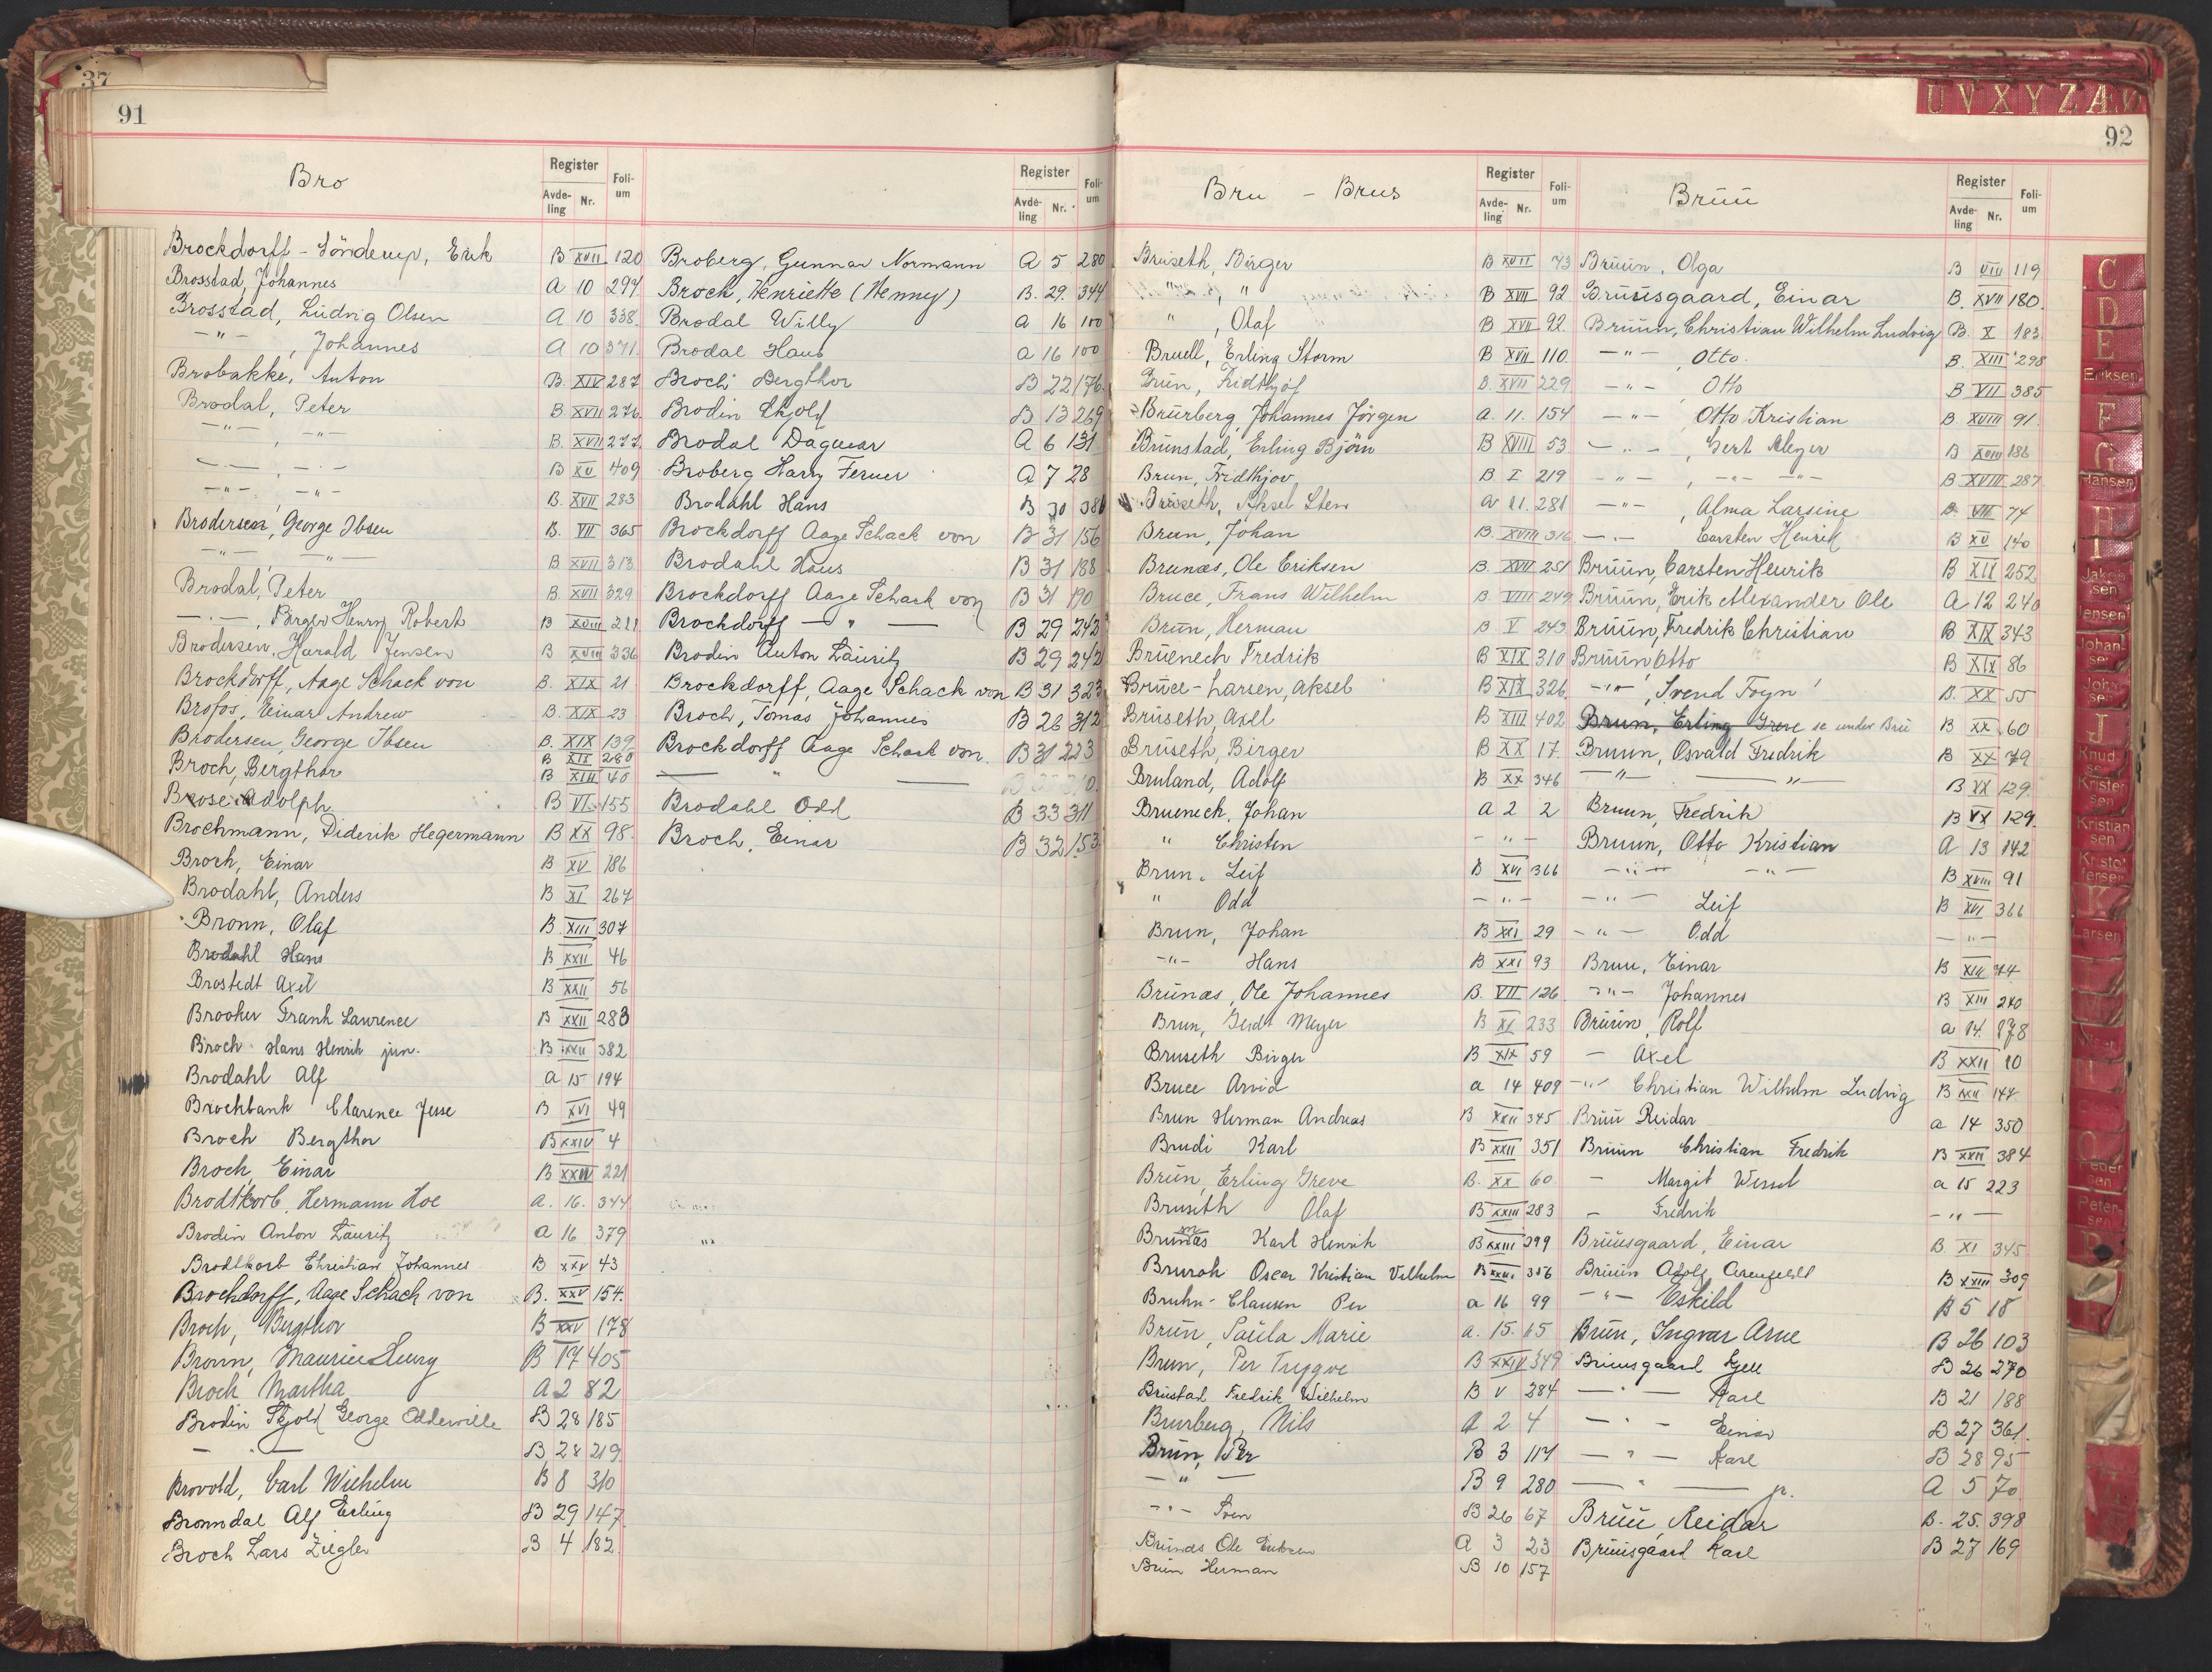 37
91
Bro
Register
Avde-
ling
Nr.
Foli-
um
Brockdorff - Sönderup, Erik B XVII 120
Brosstad, Johannes A 10 294
Brosstad, Ludvig Olsen A 10 338
— " — , Johannes A 10 371
Brobakke, Anton B. XIV 287
Brodal, Peter B. XVII 276
— " — , — " — B. XVII 277
— " — , — " — B XV 409
— " — , — " — B. XVII 283
Brodersen, George Ibsen B. VII 365
— " — — " — B XVII 313
Brodal, Peter B. XVII 329
— " — , Birger Henry Robert B XVIII 211
Brodersen, Harald Jensen B XVIII 336
Brockdorff, Aage Schack von B. XIX 21
Brofos, Einar Andrew B. XIX 23
Brodersen, George Ibsen B. XIX 139
B XIX 280
Broch, Bergthor B XIII 40
Brose Adolph B VI 155
Brochmann, Diderik Hegermann B XX 98
Broch, Einar B XV 186
Brodahl, Anders B XI 267
Bronn, Olaf B. XIII 307
Brodahl Hans B XXII 46
Brostedt Axel B XXII 56
Brooker Frank Lawrence B XXII 283
Broch Hans Henrik jun. B XXII 382
Brodahl Alf a 15 194
Brochbank Clarence Jesse B XVI 49
Broch Bergthor B XXIV 4
Broch, Einar B XXIV 221
Brodtkorb, Hermann Hoe A. 16. 344
Brodin Anton Lauritz a 16 379
Brodtkorb Christian Johannes B XXV 43
Brockdorff, Aage Schack von B. XXV 154
Broch, Bergthor B XXV 178
Bronn, Maurice Henry B 17 405
Broch Martha A 2 82
Brodin Skjold George Odderville B 28 185
— " — B 28 219
Brovold, Carl Wilhelm B 8 310
Bronndal Alf Erling B 29 147
Broch Lars Ziegler B 4 182
Register
Avde-
ling
Nr.
Foli-
um
Broberg, Gunnar Normann A 5 280
Broch, Henriette (Henny) B. 29. 344
Brodal Willy a 16 100
Brodal Hans a 16 100
Broch Bergthor B 22 176
Brodin Skjold B 13 269
Brodal Dagmar A 6 131
Broberg Harry Ferner A 7 28
Brodahl Hans B 30 386
Brockdorff Aage Schack von B 31 156
Brodahl Hans B 31 188
Brockdorff Aage Schack von B 31 190
Brockdorff — " — B 29 242
Brodin Anton Lauritz B 29 242
Brockdorff, Aage Schack von B 31 323
Broch, Tomas Johannes B 26 312
Brockdorff Aage Schack von B 31 223
— " —
Brodahl Odd B 33 311
Broch, Einar B 32 153
92
Bru - Brus
Register
Avde-
ling
Nr.
Foli-
um
Bruseth, Birger B XVII 73
" , " B XVII 92
" , Olaf B XVII 92
Bruell, Erling Storm B XVII 110
Brun, Fridthjof B. XVII 229
Brurberg, Johannes Jörgen a. 11. 154
Brunstad, Erling Bjørn B XVIII 53
Brun, Fridthjov B I 219
Bruseth, Aksel Sten a 11. 281
Brun, Johan B. XVIII 316
Brunæs, Ole Eriksen B. XVII 251
Bruce, Frans Wilhelm B VIII 249
Brun, Herman B V 243
Bruenech Fredrik B XIX 310
Bruce-Larsen, Aksel B XIX 326
Bruseth, Axel B XIII 402
Bruseth, Birger B XX 17
Bruland, Adolf B XX 346
Brueneck, Johan a 2 2
" Christen — " —
Brun, Leif B XVI 366
" Odd — " —
Brun, Johan B XXI 29
— " — Hans B XXI 93
Brunæs, Ole Johannes B. VII 126
Brun, Gerdt Meyer B XI 233
Bruseth Birger B XIX 59
Bruce Arvid a 14 409
Brun Herman Andreas B XXII 345
Brudi Karl B XXII 351
Brun, Erling Greve B. XX 60
Bruseth Olaf B XXIII 283
Brunæs Karl Henrik B XXIII 299
Oscar Kristian Vilhelm B XXIII 356
Bruhn-Clausen Per a 16 99
Brun, Paula Marie a. 15. 65
Brun, Per Tryggve B XXIV 349
Brustad Fredrik Wilhelm B V 284
Brurberg, Nils A 2 4
Brun, Per B 3 117
— " — B 9 280
— " — Sven B 26 67
Brunæs Ole Eriksen A 3 23
Brun Herman B 10 157
Bruu
Register
Avde-
ling
Nr.
Foli-
um
Bruun, Olga B VIII 119
Bruusgaard, Einar B. XVII 180
Bruun, Christian Wilhelm Ludvig B. X 183
— " — , Otto B. XIII 298
— " — , Otto B VII 385
— " — , Otto Kristian B. XVIII 91
— " — , Gert Meyer B XVIII 186
— " — , — " — B XVIII 287
— " — , Alma Larsine B. VII 74
— " — Carsten Henrik B XV 140
Bruun, Carsten Henrik B XII 252
Bruun, Erik Alexander Ole A 12 240
Bruun, Fredrik Christian B XIX 343
Bruun Otto B XIX 86
— " — , Svend Foyn B. XX 55
Brun, Erling Greve se under Bru B XX 60
Bruun, Osvald Fredrik B XX 79
— " — — " — B XX 129
Bruun, Fredrik B VX 129
Bruun, Otto Kristian A 13 142
— " — — " — B XVIII 91
— " — Leif B XVI 366
— " — Odd — " —
Bruu, Einar B XII 74
— " — Johannes B XIII 240
Bruun, Rolf a 14. 178
— Axel B XXII 10
— " — Christian Wilhelm Ludvig B XXII 144
Bruu Reidar a 14 350
Bruun Christian Fredrik B XXII 384
— Margit Wessel a 15 223
— Fredrik — " —
Bruusgaard, Einar B. XI 345
Bruun Adolf Arenfeldt B XXIII 309
— " — Eskild B 5 18
Bruu, Ingvar Arne B 26 103
Bruusgaard Kjell B 26 270
— " — Karl B 21 188
— " — Einar B 27 361
— " — Karl B 28 95
— " — jr. A 5 70
Bruu, Reidar B. 25. 398
Bruusgaard Karl B 27 169
U V X Y Z Æ Ø
C
D
E
Eriksen
F
G
Hansen
H
I
Jakob
sen
Jensen
Johan
sen
Joh
sen
J
Knud
sen
Krister
sen
Kristian
sen
Kristof
fersen
K
Larsen
L
O
Peder
sen
Peter-
sen